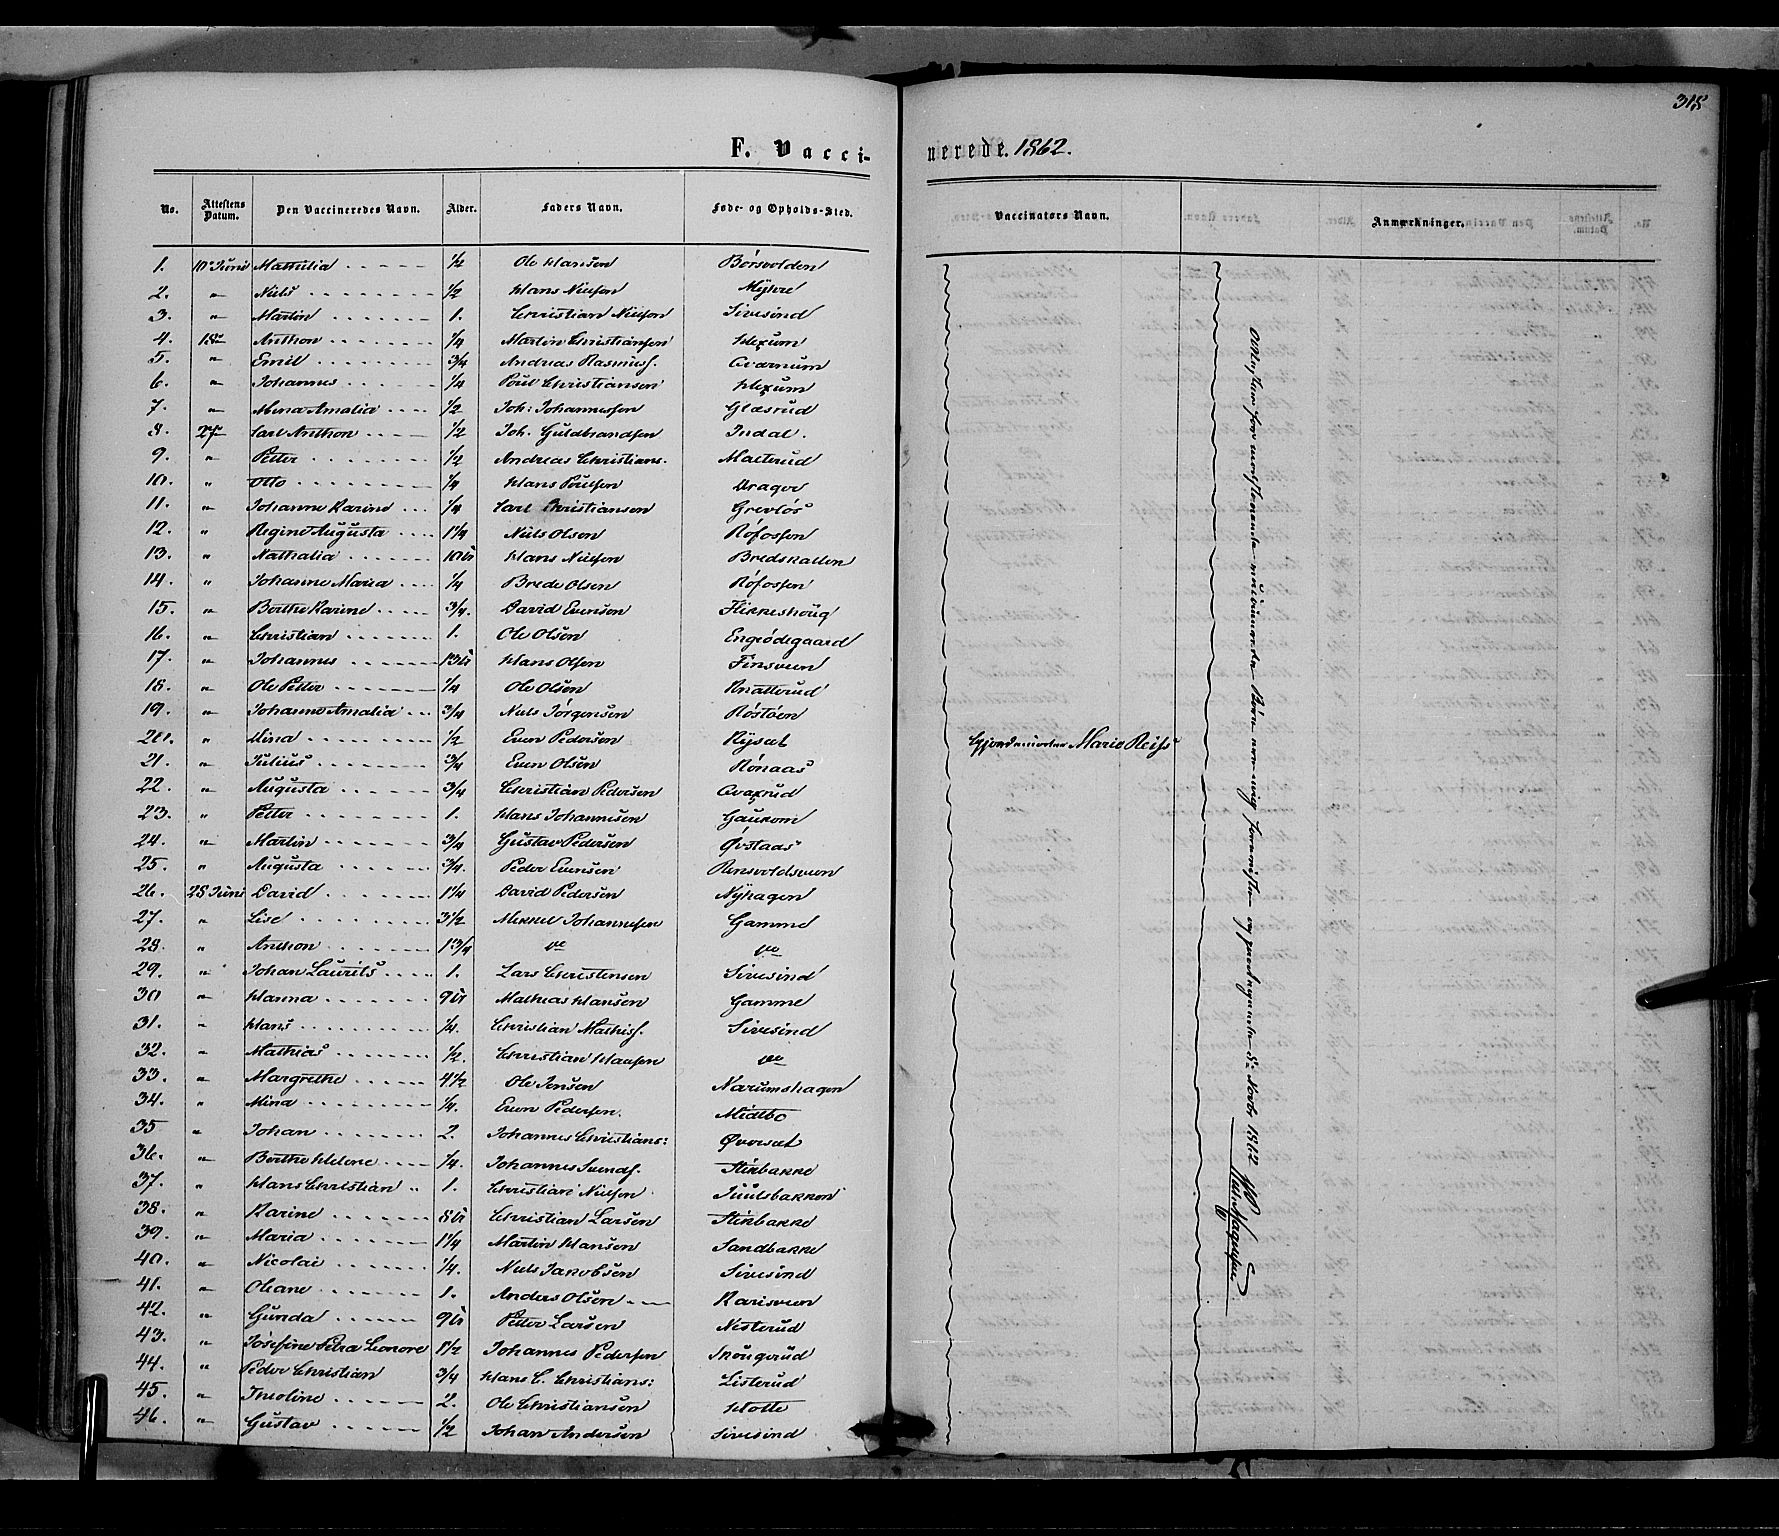 318
F. Vaccinerede. 1862.
No. Attestens Datum. Den Vaccineredes Navn. Alder. Faders Navn. Føde- og Opholds-Sted. Vaccinators Navn. Anmærkninger.
1. 10 Juni Mathilia 1/2 Ole Hansen Børsvolden
2. " Niels 1/2 Hans Nielsen Myhre
3. " Martin 1. Christian Nielsen Sivesind
4. 18 Anthon 1/4 Martin Christiansen Hexum
5. " Emil 3/4 Andreas Rasmuss. Qvarnum
6. " Johannes 1/4 Poul Christiansen Hexum
7. " Mina Amalia 1/2 Joh: Johannessen Glæsrud
8. 27 Carl Anthon 1/2 Joh. Guldbrandsen Indal.
9. " Petter 1/2 Andreas Christians. Malterud
10. " Otto 1/4 Hans Poulsen
11. " Johanne Karine 1/4 Carl Christiansen Grevløs
12. " Regine Augusta 1 1/4 Niels Olsen Røfossen
13. " Nathalia Hans Nielsen Bredskallen
14. " Johanne Maria 1/4 Brede Olsen Røfossen
15. " Berthe Karine 3/4. David Evensen Flikkeshoug
16. " Christian 1. Ole Olsen Engeødegaard
17. " Johannes Hans Olsen Finsveen
18. " Ole Petter 1/4 Ole Olsen Knatterud
19. " Johanne Amalia 3/4 Niels Jørgensen Røstøen
20. " Mina 1/2 Even Pedersen Rysæt Gjordemoder Marie Reiss
21. " Julius 3/4 Even Olsen Rønaas
22. " Augusta 3/4 Christian Pedersen
23. " Petter 1. Hans Johannesen Gaukom
24. " Martin 3/4 Gustav Pedersen Øvstaas
25 " Augusta 3/4. Peder Evensen Rensvoldsveen
26. 28 Juni David 1 1/4 David Pedersen Nyhagen
27. " Lise 3 1/2 Mekkel Johannessen Gamme
28. " Anthon 1 3/4
29. " Johan Laurits 1. Lars Christensen Sivesind
30 " Hanna Mathias Hansen Gamme
31. " Hans 1/4. Christian Mathiss. Sivesind
32. " Mathias 1/2. Christian Hansen
33. " Margrethe 4 1/2 Ole Jensen Narumshagen
34. " Mina 1/4. Even Pedersen. Midtbo
35 " Johan 2. Johannes Christians: Øversæt
36. " Berthe Helene 1/4. Johannes Svends. Stenbakke
37. " Hans Christian 1. Christian Nielsen Juulsbakken
38. " Karine Christian Larsen Stenbakke
39. " Maria 1 1/4 Martin Hansen Sandbakke
40. " Nicolai 1/4. Niels Jakobsen Sivesind
41. " Oleane 1. Anders Olsen Karisveen
42. " Gunda Petter Larsen Nesterud
43. " Josefine Petra Leonore 1 1/2 Johannes Pedersen Skougerud
44. " Peder Christian 3/4 Hans C. Christians: Listerud
45. " Theoline 2. Ole Christiansen
46. " Gustav 1/2 Johan Andersen Sivesind